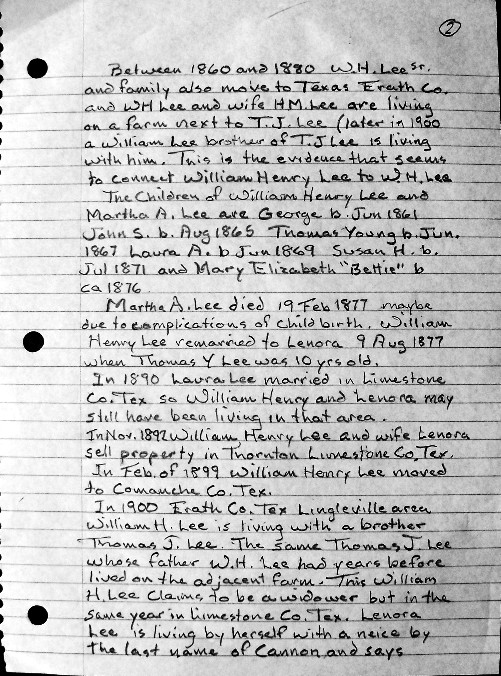 2
Between 1860 and 1880 W.H. Lee Sr.
and family also move to Texas Erath Co.
and WH Lee and wife H.M. Lee are living
on a farm next to T.J. Lee (later in 1900
a William Lee brother of T.J Lee is living
with him. This is the evidence that seems
to connect William Henry Lee to W.H. Lee
The Children of William Henry Lee and
Martha A. Lee are George b. Jun 1861
John S. b. Aug 1865 Thomas Young b. Jun.
1867 Laura A. b Jun 1869 Susan H. b.
Jul 1871 and Mary Elizabeth "Bettie" b
ca 1876.
Martha A. Lee died 19 Feb 1877 maybe
due to complications of child birth. William
Henry Lee remarried to Lenora 9 Aug 1877
when Thomas Y Lee was 10 yrs old.
In 1890 Laura Lee married in Limestone
Co. Tex so William Henry and Lenora may
still have been living in that area.
In Nov. 1892 William Henry Lee and wife Lenora
sell property in Thornton Limestone Co. Tex.
In Feb. of 1899 William Henry Lee moved
to Comanche Co. Tex.
In 1900 Erath Co. Tex Lingleville area
William H. Lee is living with a brother
Thomas J. Lee. The same Thomas J. Lee
whose father W.H. Lee had years before
lived on the adjacent farm. This William
H. Lee Claims to be a widower but in the
same year in Limestone Co. Tex. Lenora
Lee is living by herself with a neice by
the last name of Cannon and says